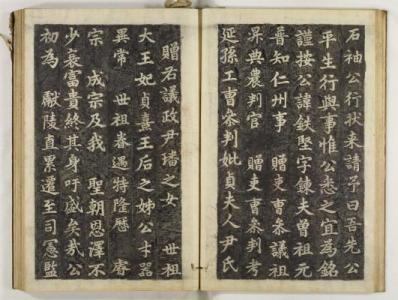 石袖公行状来請予曰吾先公
平生行與事惟公悉之宜為銘
謹按公諱鉄堅字鍊夫曽祖元
普知仁州事　贈吏曺叅議祖
昇典農判官　贈吏曺叅判考
延孫工曺叅判妣貞夫人尹氏
贈右議政尹璠之女　世祖
大王妃貞熹王后之姊公才器
異常　世祖眷遇特隆曆　睿
宗　成宗及我　聖朝恩澤不
少衰富貴終其身吁盛矣哉公
初為　獻陵直累遷至司憲監